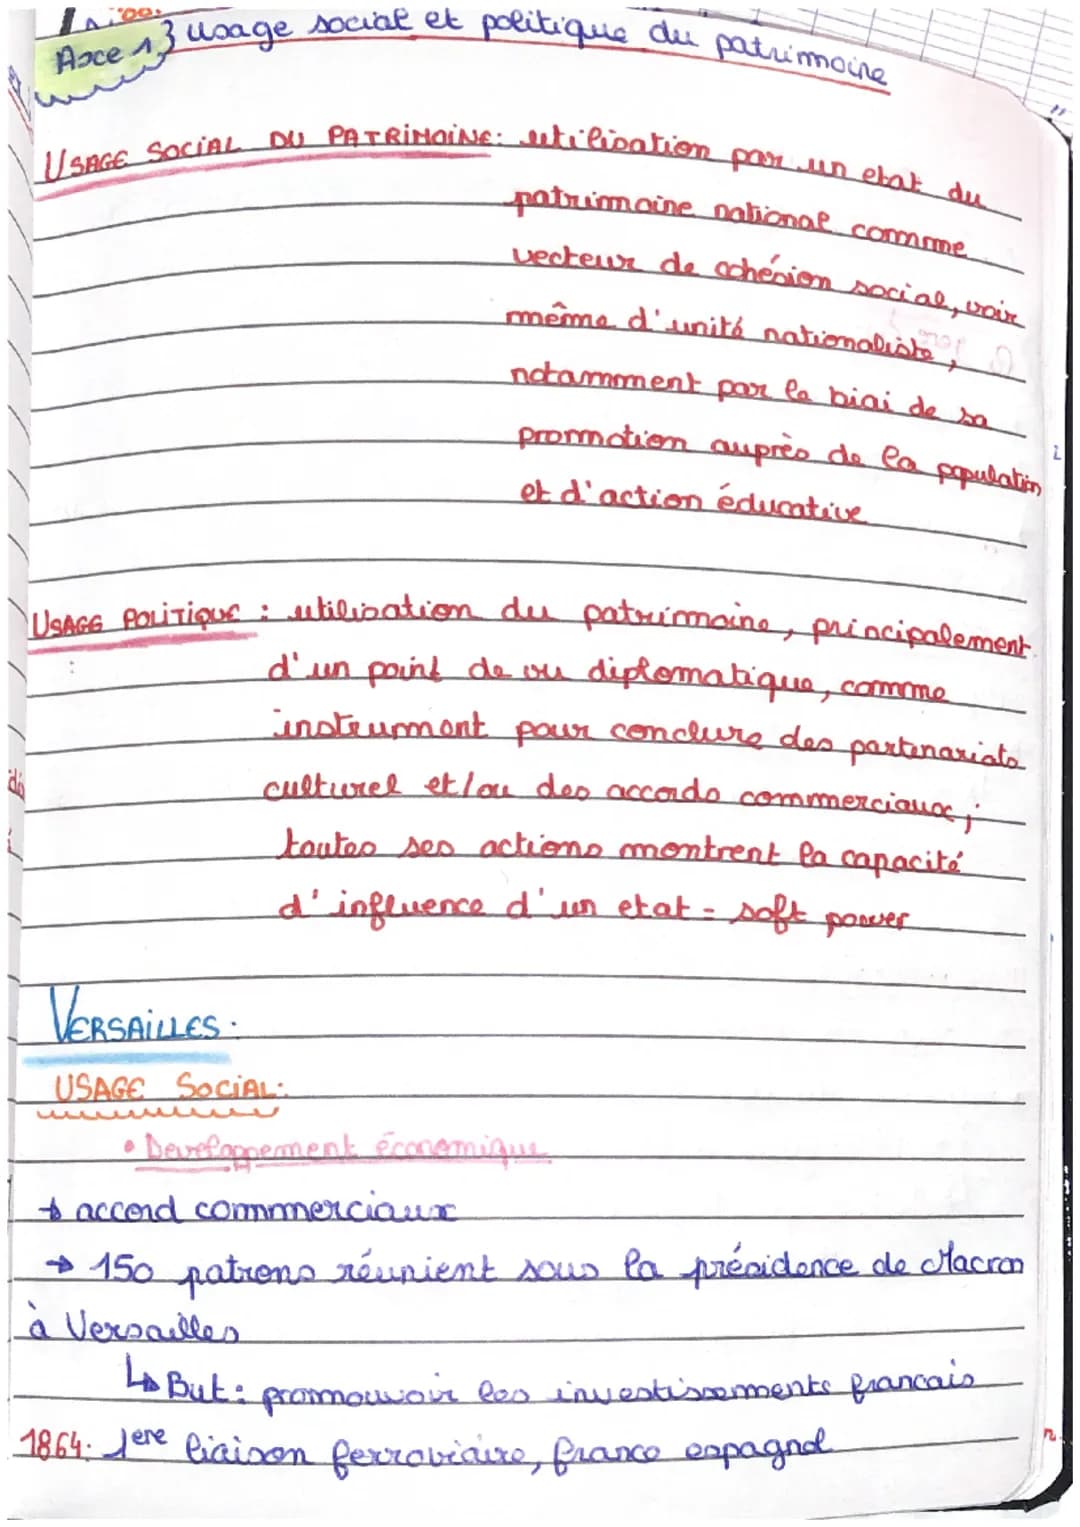 Axe 1 } usage social et politique du patrimoine
USAGE SOCIAL DU PATRIMOINE: utilisation par un etat du
patrimoine national comme
vecteur de cohésion social, voir
même d'unité nationaliste,
notamment par le biai de sa
promotion auprès de la population
et d'action éducative
USAGE POLITIQUE : utilisation du patrimoine, principalement
d'un point de vu diplomatique, comme
instrument pour conclure des partenariats
culturel et/ou des accords commerciaux ;
toutes ses actions montrent la capacité
d'influence d'un etat = soft power
VERSAILLES :
USAGE SOCIAL:
• Developpement économique
→ accord commmerciaux
→ 150 patrons réunient sous la présidence de Macron
à Versailles
↳ But : promouvoir les investissements francais
1864: 1ere liaison ferroviaire, franco espagnol